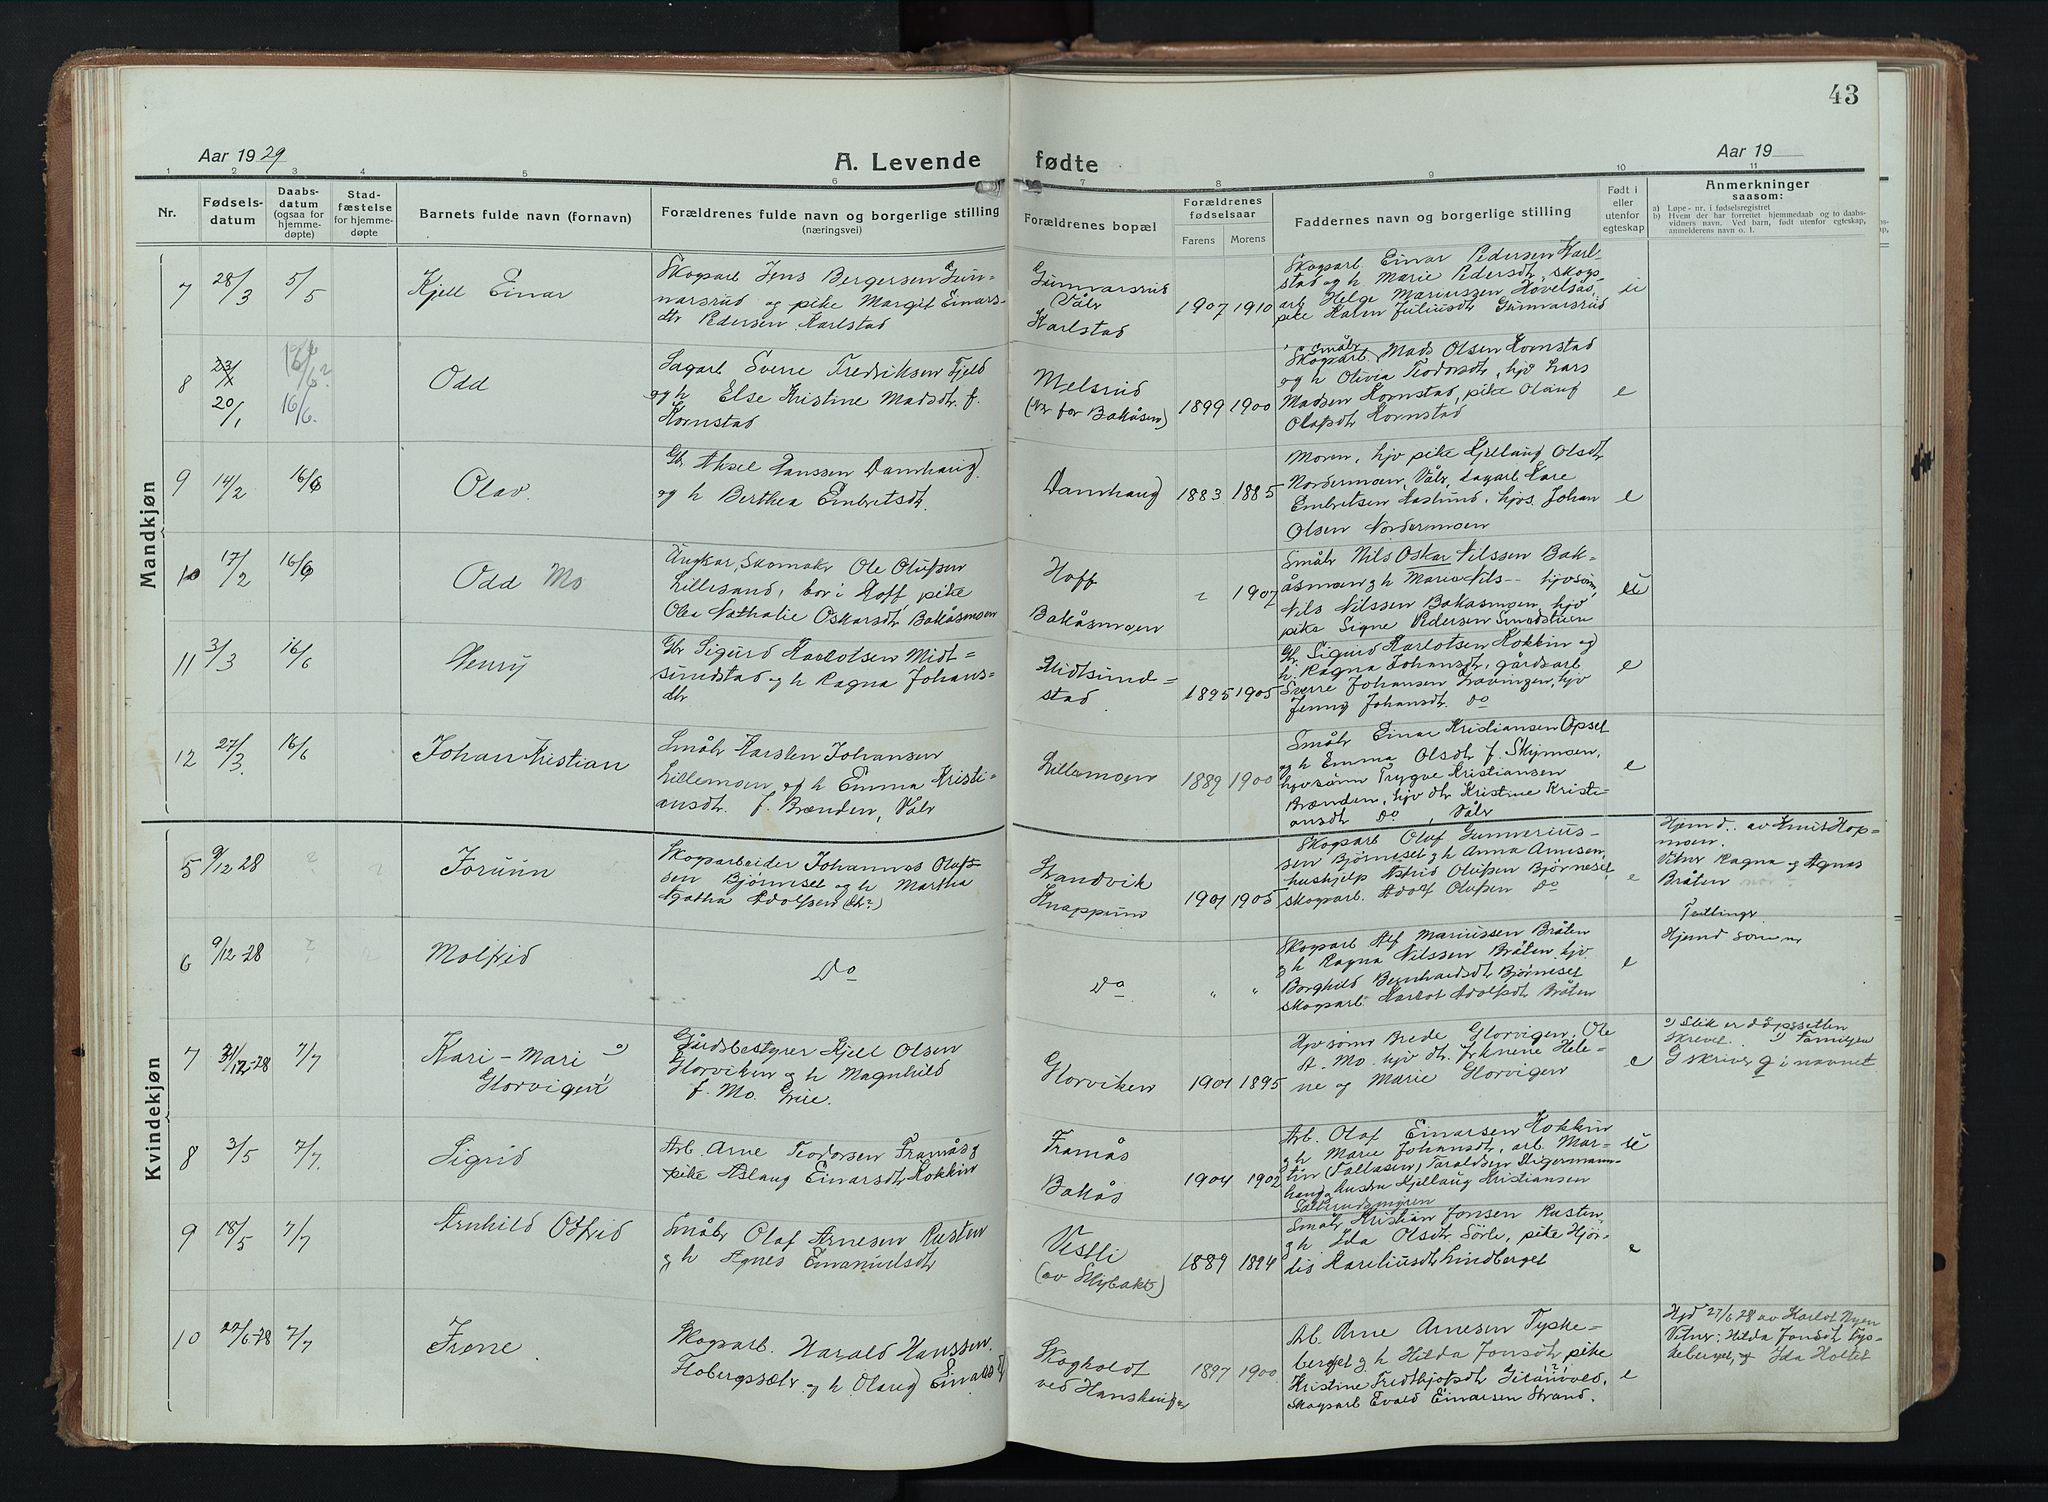 43
Aar 1929
A. Levende fødte
Aar 19
1 2 3 4 5 6 7 8 9 10 11
Nr.
Fødselsdatum
Daabsdatum (ogsaa for hjemmedøpte)
Stadfæstelse for hjemmedøpte
Barnets fulde navn (fornavn)
Forældrenes fulde navn og borgerlige stilling
(næringsvei)
Forældrenes bopæl
Forældrenes fødselsaar
Farens Morens
Faddernes navn og borgerlig stilling
Født i eller utenfor egteskap
Anmerkninger saasom:
a) Løpe-nr. i fødselsregistret
b) Hvem der har forrettet hjemmedaab og to daabsvidners navn. Ved barn, født utenfor egteskap, anmelderens navn o. l.
Mandkjøn
7 28/3 5/5 Kjell Einar
Skogsarb Jens Bergersen Gunnarsrud og pike Margit Einarsdtr Pedersen Karlstad
Gunnarsrud Vålr Karlstad
1907 1910
Skogsarb Einar Pedersen Karlstad og h Marie Pedersdt, skogsarb Helge Mariussen Hovelsås, pike Karen Juliusdt Gunnarsrud
u
8 20/1 16/6 Odd
Sagarb Sverre Fredriksen Fjeld og h Else Kristine Madsdtr f. Kornstad
Melsrud (nr for Bakåsen)
1899 1900
Småbr Mads Olsen Kornstad og h Olivia Teodorsdt, hjv Lars Madsen Kornstad, pike Olaug Olafsdt Kornstad
e
9 14/2 16/6 Olav.
Gbr Aksel Hanssen Damhaug og h Berthea Embretsdt.
Damhaug
1883 1885
Moren, hjv pike Kjellaug Olsdt Nordermoen, Vålr, sagarb Kåre Embretsen Haslund, hjvs. Johan Olsen Nordermoen
e
10 17/2 16/6 Odd Mo
Ungkar, Skomakr Ole Olufsen Lillesand, bor i Hoff, pike Olea Nathalie Oskarsdt Bakåsmoen
Hoff Bakåsmoen
1907
Småbr Nils Oskar Nilssen Bakåsmoen g h Marie Nils-- hjvsønn, Nils Nilssen Bakåsmoen, hjv pike Signe Pedersen Smedstuen
u
11 3/3 16/6 Henry
Gbr Sigurd Karlotsen Midtsundstad og h Ragna Johansdtr
Midtsundstad
1895 1905
Gbr. Sigurd Karlotsen Kokkin og h. Ragna Johansdt, gårdsarb Sverre Johansen, hjv Jenny Johansdt. do
e
12 27/3. 16/6 Johan Kristian
Småbr Karsten Johansen Lillemoen og h Emma Kristiansdt. f. Brænden, Vålr
Lillemoen
1889 1900
Småbr Einar Kristiansen Opset og h Emma Olsdt f. Skymoen, hjvsønn Trygve Kristiansen Brænden, hjv dtr Kristine Kristiansdt do, Vålr
e
Kvindekjøn
5 9/12 28 ? ? Jorunn
Skogsarbeider Johannes Olufssen Bjørneset og h Martha Agatha Adolfsen (dt?)
Sandvik Knappum
1901 1905
Skogsarb Oluf Gunneriussen Bjørneset g h Anna Arnesen, hushjelp Astrid Olufsen Bjørneset, skogsarb. Adolf Olufsen do
e
Hjemd. av Knut Hopmoen. Vitner Ragna og Agnes Bråten
Tvillinger
6 9/12-28 ? ? Molfrid
Do
do
" "
Skogsarb Alf Mariussen Bråten g h Ragna Nilssen Bråten, hjv. Borghild Bernhardsdt Bjørneset skogsarb. Karlot Adolfsdt Bråten
e
Hjemd som nr
7 31/12-28 7/7 Kari-Mari o) Glorvigen
Gårdsbestyrer Kjell Olsen Glorviken og h Magnhild f. Mo, Grue.
Glorviken
1901 1895
Hjvsønn Brede Glorvigen, Ole A. Mo. hjv dtr. Irene Helene og Marie Glorvigen
e
o) Slik er døpssetlen skrevet. 1) Familien G skriver g i navnet
8 3/5 7/7. Sigrid
Arb. Arne Teodorsen Framås g pike Aslaug Einarsdt Kokkin
Framås Bakås
1904 1902
Arb. Olaf Einarsen Kokkin g h Marie Johansdt, arb. Martin (Tallasen) Taraldsen Stigermannshaug g hustru Kjellaug Kristiansen
u
9 18/5 7/7 Arnhild Ottrid
Småbr Olaf Arnesen Rusten g h Agnes Emanuelsdt
Vestli (av Slybakk)
1889 1894
Småbr Kristian Jonsen Rusten, g h. Ida Olsdt Sørli, pike Hjørdis Kareliusdt Lindberget
e
10 27/6-28 7/7 Irene.
Skogsarb. Harald Hanssen Flobergssætr og h Olaug Einarsdt
Skogholdt ved Hanshaugen
1897 1900
Arb. Arne Arnesen Tyskeberget g h Hilda Jonsdt, pike Kristine Fredthjofsdt, Skogsarb Evald Einarsen Strand.
e
Hjd 27/6 28 av Karlot Nyen Vitner: Hilda Jonsdt Tyskeberget, g Ida Holtet